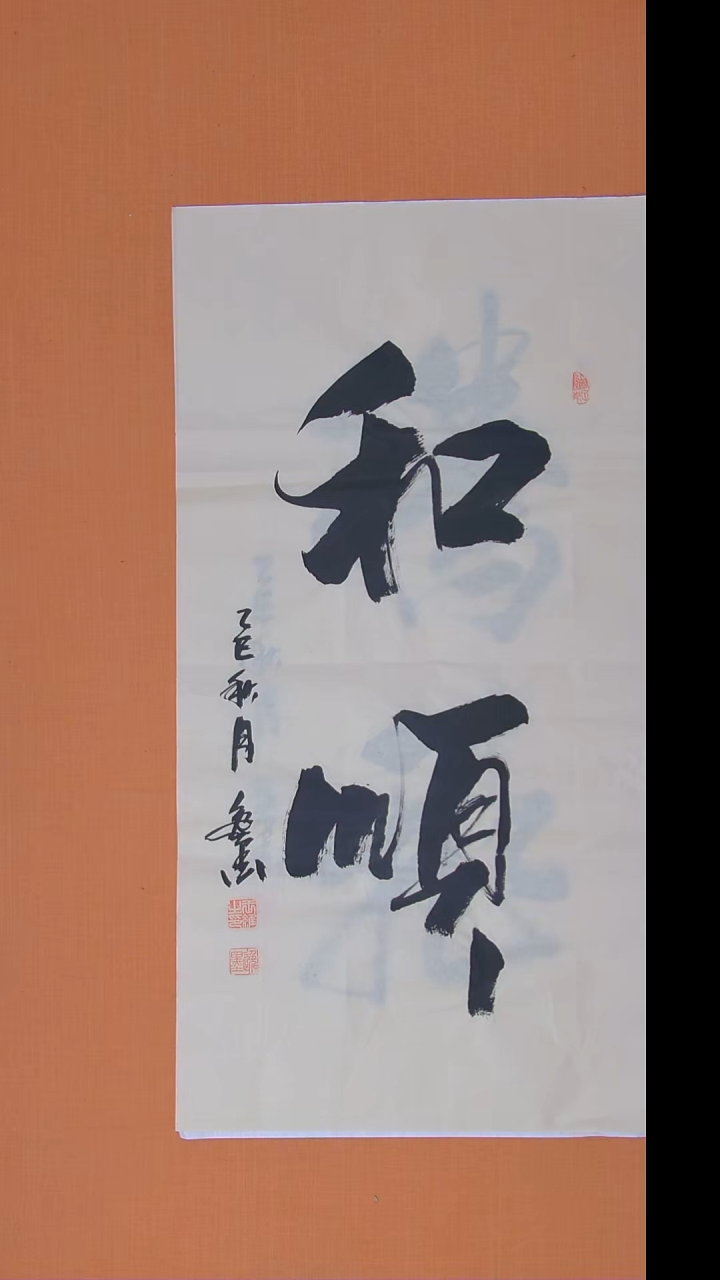 和順
乙巳秋月